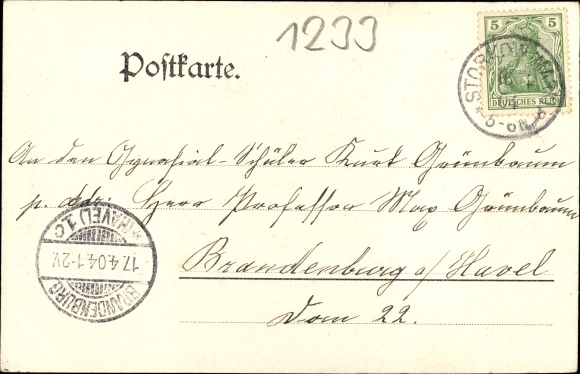 1233
Postkarte.
5 5
DEUTSCHES REICH
STORKOW (MARK)
* 5-6N.
An den Gymnasial-Schüler Kurt Grünbaum
p. adr: Herr Professor Max Grünbaum
Brandenburg a/Havel
Dom 22.
BRANDENBURG
17.4.04.1-2V.
(HAVEL) 1.c